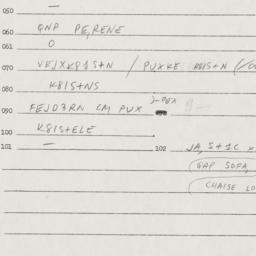 050 —
060 QNP PE,RENE
061 O
070 VEJXK81S+N / PUXKE K81S+N
080 K81S+NS
090 FEJD3RN CM PUX J-PEX
100 K81S+ELE
101 — 102 JA, S+1C
GAP SOFA,
CHAISE LO